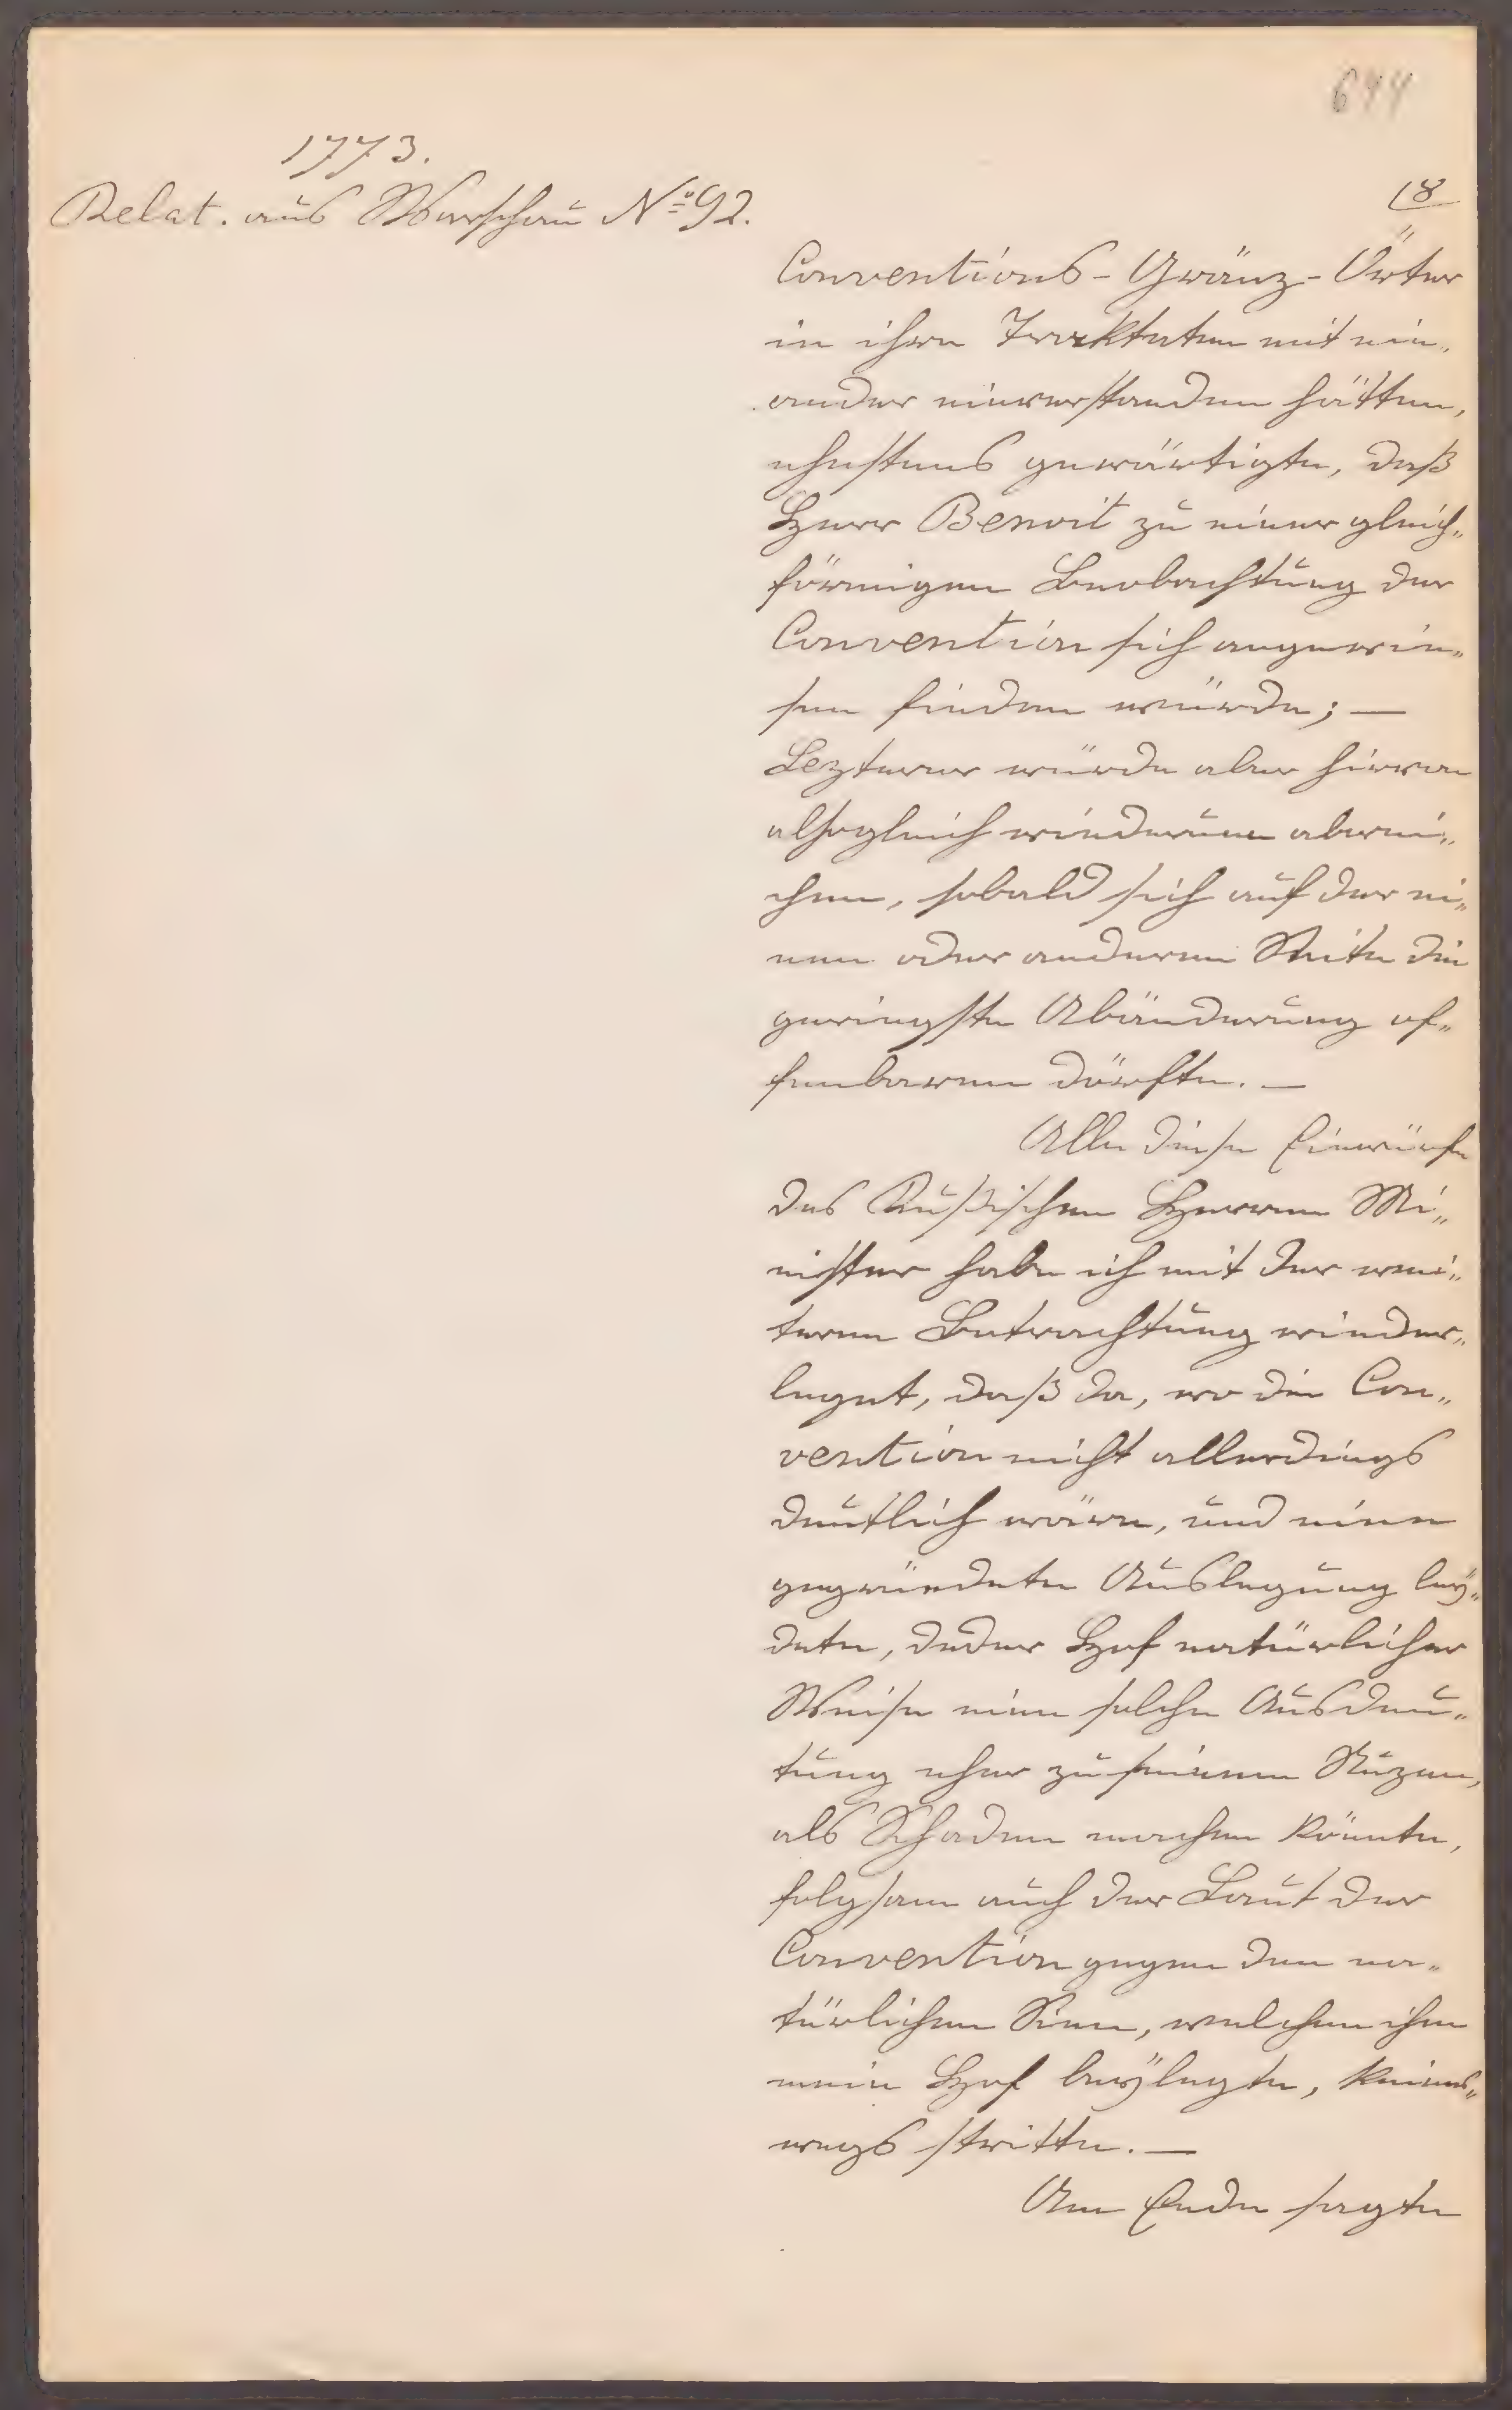 644
1773.
Relat. aus Warschau No 92.
18
Conventions-Gränz-Örter
in ihren Traktaten mit ein„
ander einverstanden hätten,
ehestens gewärtigte, daß
Herr Benoit zu einer gleich„
förmigen Beobachtung der
Convention sich angewie„
sen finden würde; —
Lezterer würde aber hievon
alsogleich wiederum abwei„
chen, sobald sich auf der ei„
nen oder anderen Seite die
geringste Abänderung of„
fenbaren dörfte. —
Alle diese Einwürfe
des Rußischen Herren Mi„
nister habe ich mit der wei„
teren Betrachtung wieder„
leget, daß da, wo die Con„
vention nicht allerdings
deutlich wäre, und eine
gegründete Auslegung ley„
dete, deder Hof natürlicher
Weise eine solche Ausdeu„
tung eher zu seinem Nuzen,
als Schaden machen könnte,
folgsam auch der Laut der
Convention gegen den na„
türlichen Sinn, welchen ihm
mein Hof beylegte, keines„
wegs stritte. —
Am Ende sagte